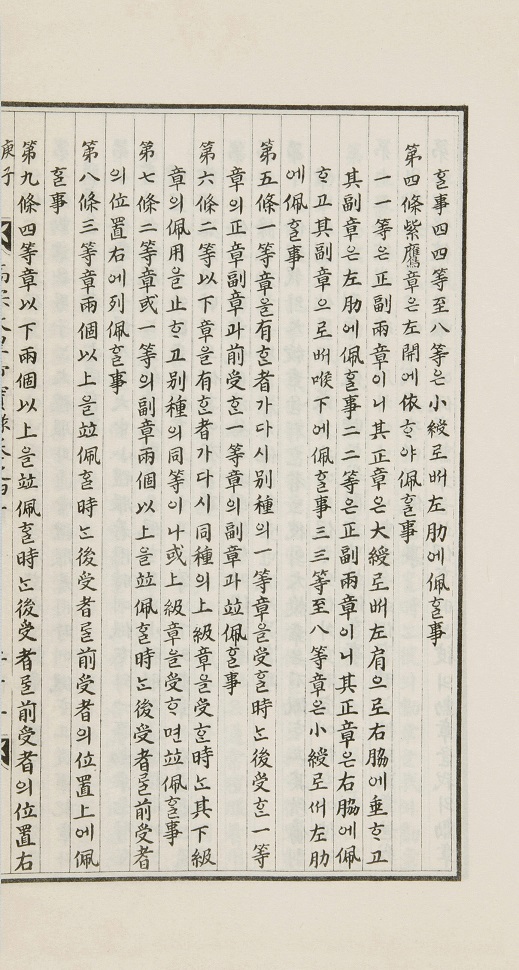 ᄒᆞᆯ事四四等至八等은小綬로ᄡᅥ左肋에佩ᄒᆞᆯ事
第四條紫鷹章은左開에依ᄒᆞ야佩ᄒᆞᆯ事
一一等은正副兩章이니其正章은大綬로ᄡᅥ左肩으로右脇에垂ᄒᆞ고
其副章은左肋에佩ᄒᆞᆯ事二二等은正副兩章이니其正章은右脇에佩
ᄒᆞ고其副章으로ᄡᅥ喉下에佩ᄒᆞᆯ事三三等至八等章은小綬로써左肋
에佩ᄒᆞᆯ事
第五條一等章을有ᄒᆞᆫ者가다시別種의一等章을受ᄒᆞᆯ時ᄂᆞᆫ後受ᄒᆞᆫ一等
章의正章副章과前受ᄒᆞᆫ一等章의副章과竝佩ᄒᆞᆯ事
第六條二等以下章을有ᄒᆞᆫ者가다시同種의上級章을受ᄒᆞᆫ時ᄂᆞᆫ其下級
章의佩用을止ᄒᆞ고別種의同等이나或上級章을受ᄒᆞ면竝佩ᄒᆞᆯ事
第七條二等章或一等의副章兩個以上을竝佩ᄒᆞᆯ時ᄂᆞᆫ後受者ᄅᆞᆯ前受者
의位置右에列佩ᄒᆞᆯ事
第八條三等章兩個以上을竝佩ᄒᆞᆯ時ᄂᆞᆫ後受者ᄅᆞᆯ前受者의位置上에佩
ᄒᆞᆯ事
第九條四等章以下兩個以上을竝佩ᄒᆞᆯ時ᄂᆞᆫ後受者ᄅᆞᆯ前受者의位置右
庚子